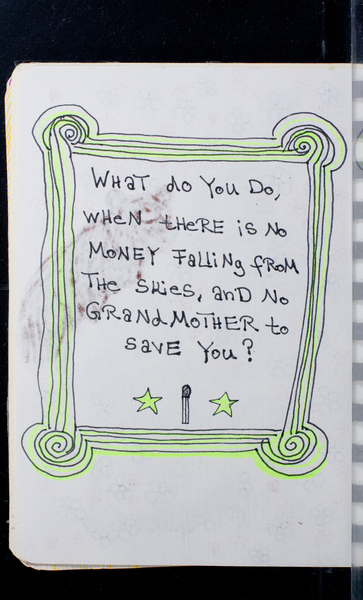 WHAT do You Do,
wHeN tHERE is No
MoNEY FalliNg fRoM
THe SkiEs, anD No
GRaNdMoTHER to
saVE You?